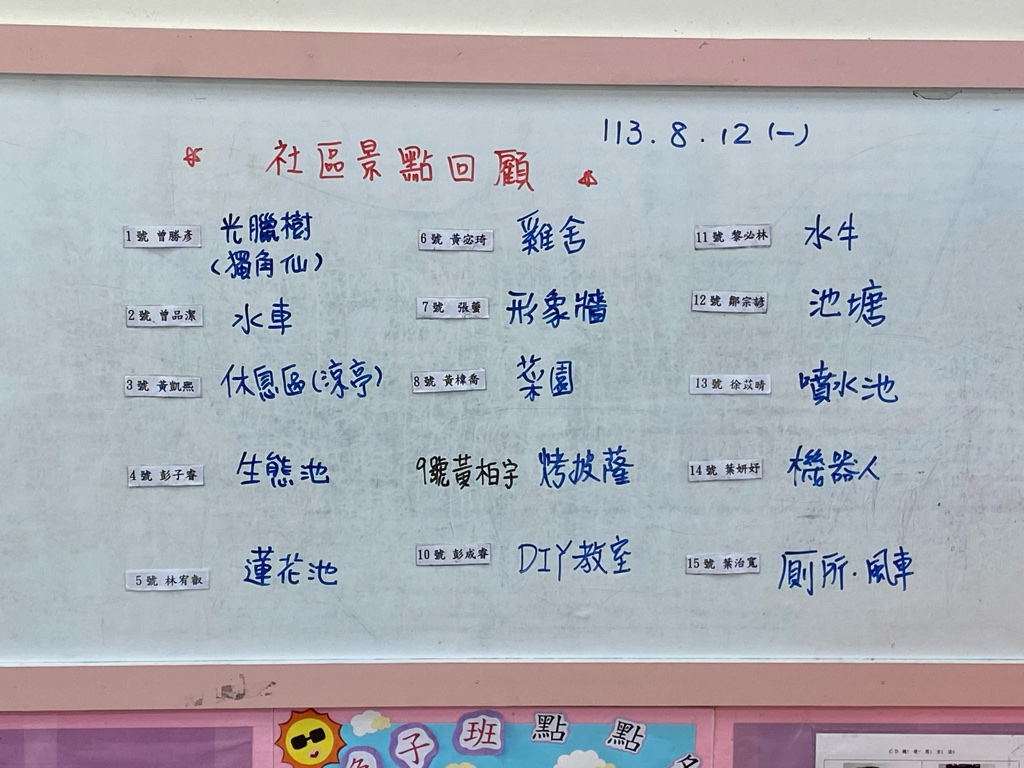 113.8.12(一)
社區景點回顧
1號 曾勝彥 光臘樹
(獨角仙)
2號 曾品潔 水車
3號 黃凱熙 休息區(涼亭)
4號 彭子睿 生態池
5號 林宥叡 蓮花池
6號 黃宓琦 雞舍
7號 張螢 形象牆
8號 黃樟喬 菜園
9號黃柏宇 烤披薩
10號 彭成睿 DIY教室
11號 黎必林 水牛
12號 鄒宗諺 池塘
13號 徐苡晴 噴水池
14號 葉妍妤 機器人
15號 葉治寬 廁所.風車
子班點點